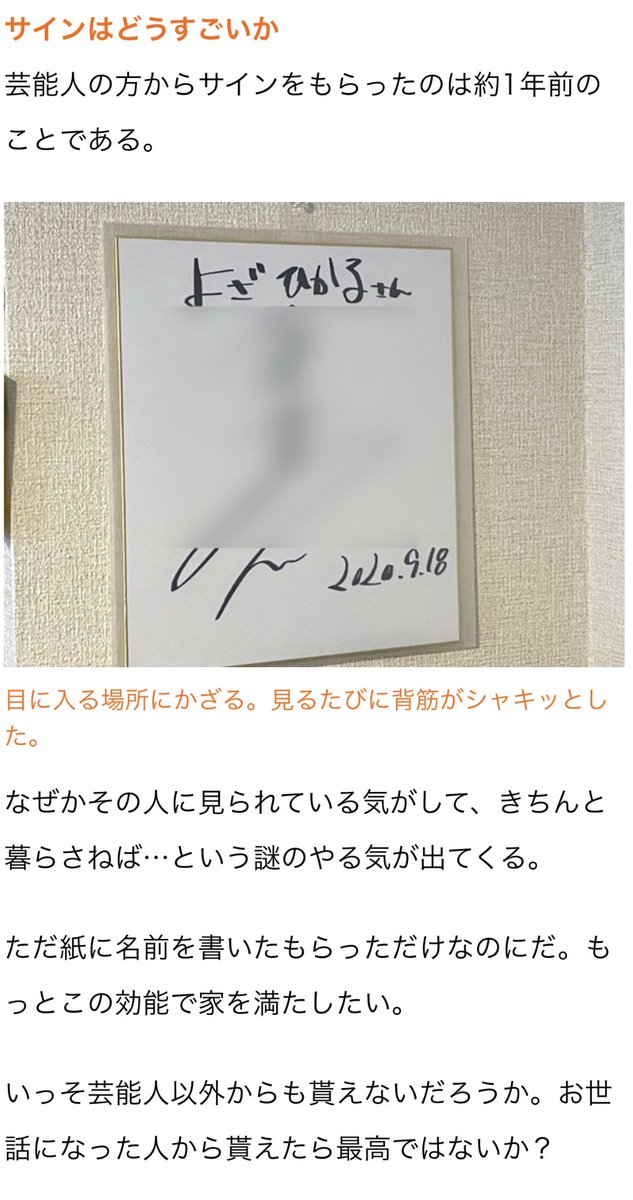 サインはどうすごいか
芸能人の方からサインをもらったのは約1年前の
ことである。
よざ ひかるさん
2020.9.18
目に入る場所にかざる。見るたびに背筋がシャキッとし
た。
なぜかその人に見られている気がして、きちんと
暮らさねば…という謎のやる気が出てくる。
ただ紙に名前を書いたもらっただけなのにだ。も
っとこの効能で家を満たしたい。
いっそ芸能人以外からも貰えないだろうか。お世
話になった人から貰えたら最高ではないか？